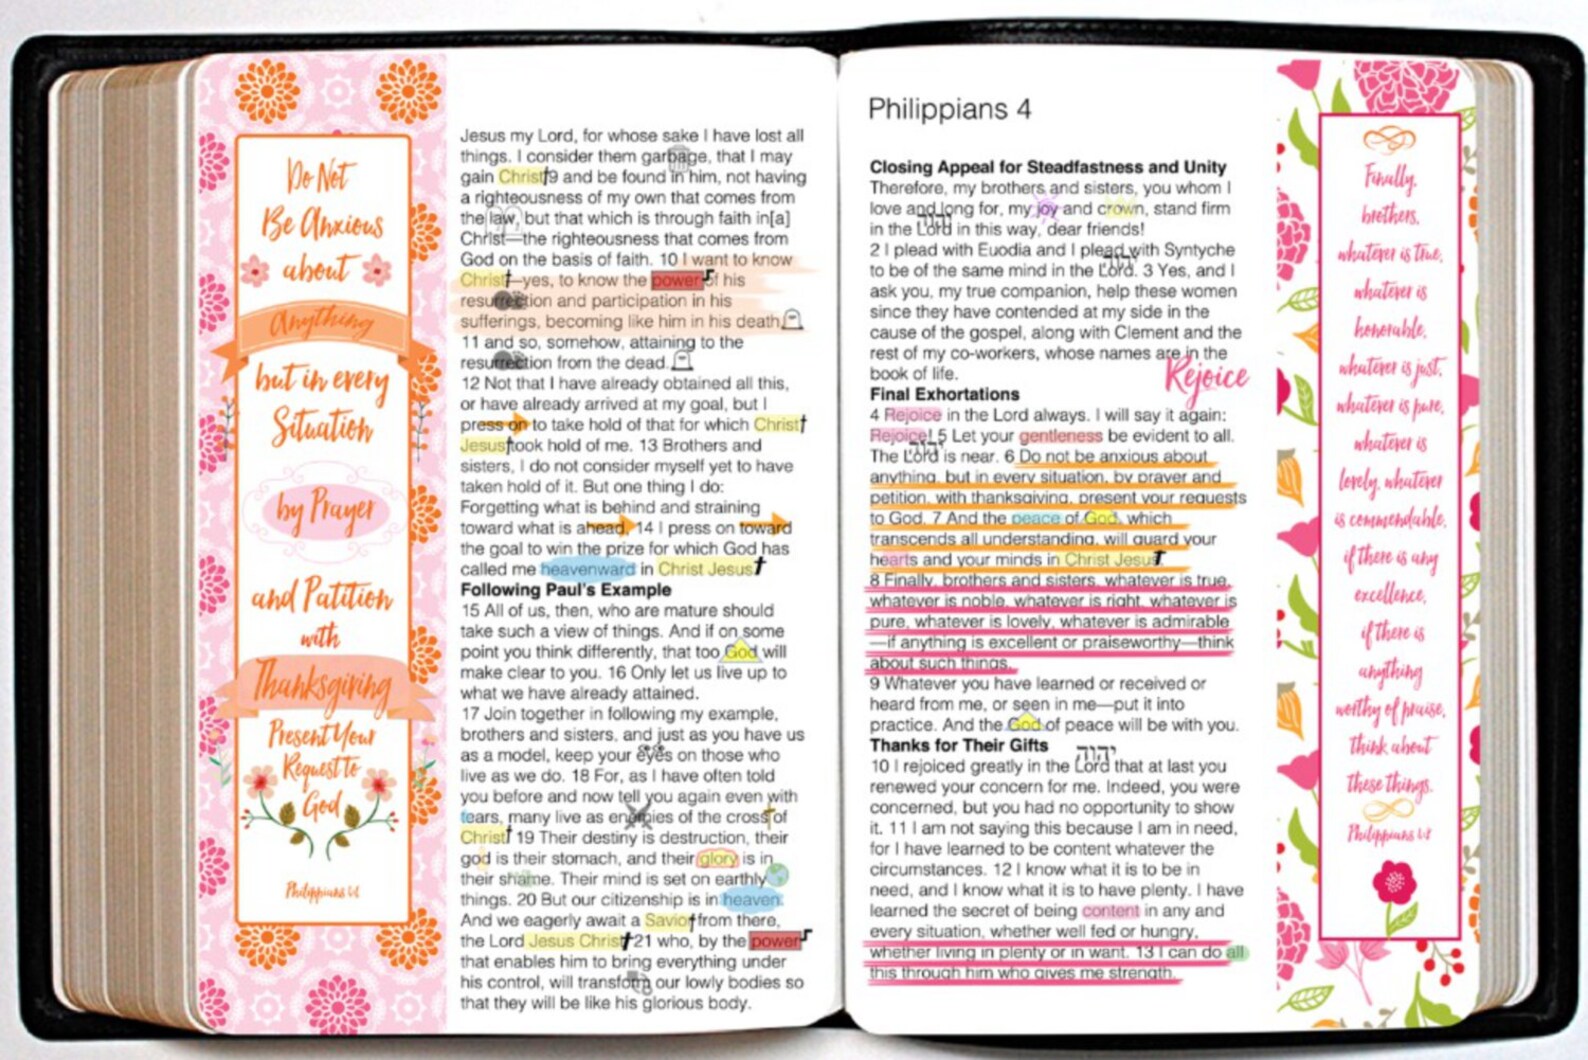 Do Not
Be Anxious
about
Anything
but in every
Situation
by Prayer
and Patition
with
Thanksgiving
Present Your
Request to
God
Jesus my Lord, for whose sake I have lost all
things. I consider them garbage, that I may
gain Christ 9 and be found in him, not having
a righteousness of my own that comes from
the law, but that which is through faith in[a]
Christ—the righteousness that comes from
God on the basis of faith. 10 I want to know
Christ—yes, to know the power of his
resurrection and participation in his
sufferings, becoming like him in his death,
11 and so, somehow, attaining to the
resurrection from the dead.
12 Not that I have already obtained all this,
or have already arrived at my goal, but I
press on to take hold of that for which Christ
Jesus took hold of me. 13 Brothers and
sisters, I do not consider myself yet to have
taken hold of it. But one thing I do:
Forgetting what is behind and straining
toward what is ahead, 14 I press on toward
the goal to win the prize for which God has
called me heavenward in Christ Jesus
Following Paul's Example
15 All of us, then, who are mature should
take such a view of things. And if on some
point you think differently, that too God will
make clear to you. 16 Only let us live up to
what we have already attained.
17 Join together in following my example,
brothers and sisters, and just as you have us
as a model, keep your eyes on those who
live as we do. 18 For, as I have often told
you before and now tell you again even with
tears, many live as enemies of the cross of
Christ 19 Their destiny is destruction, their
god is their stomach, and their glory is in
their shame. Their mind is set on earthly
things. 20 But our citizenship is in heaven.
And we eagerly await a Savior from there,
the Lord Jesus Christ 21 who, by the power
that enables him to bring everything under
his control, will transform our lowly bodies so
that they will be like his glorious body.
Philippians 4
Closing Appeal for Steadfastness and Unity
Therefore, my brothers and sisters, you whom I
love and long for, my joy and crown, stand firm
יהוה
in the Lord in this way, dear friends!
2 I plead with Euodia and I plead with Syntyche
יהוה
to be of the same mind in the Lord. 3 Yes, and I
ask you, my true companion, help these women
since they have contended at my side in the
cause of the gospel, along with Clement and the
rest of my co-workers, whose names are in the
book of life.
Rejoice
Final Exhortations
4 Rejoice in the Lord always. I will say it again:
Rejoice! 5 Let your gentleness be evident to all.
יהוה
The Lord is near. 6 Do not be anxious about
anything, but in every situation, by prayer and
petition, with thanksgiving, present your requests
to God. 7 And the peace of God, which
transcends all understanding, will guard your
hearts and your minds in Christ Jesus
8 Finally, brothers and sisters, whatever is true,
whatever is noble, whatever is right, whatever is
pure, whatever is lovely, whatever is admirable
—if anything is excellent or praiseworthy—think
about such things.
9 Whatever you have learned or received or
heard from me, or seen in me—put it into
practice. And the God of peace will be with you.
Thanks for Their Gifts
יהוה
10 I rejoiced greatly in the Lord that at last you
renewed your concern for me. Indeed, you were
concerned, but you had no opportunity to show
it. 11 I am not saying this because I am in need,
for I have learned to be content whatever the
circumstances. 12 I know what it is to be in
need, and I know what it is to have plenty. I have
learned the secret of being content in any and
every situation, whether well fed or hungry,
whether living in plenty or in want. 13 I can do all
this through him who gives me strength.
Finally,
brothers,
whatever is true,
whatever is
honorable,
whatever is just,
whatever is pure,
whatever is
lovely, whatever
is commendable,
if there is any
excellence,
if there is
anything
worthy of praise,
think about
these things.
Philippians 4:8